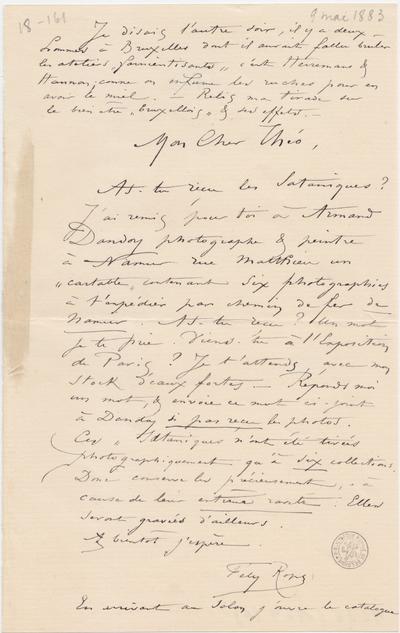 18-161
9 mai 1883
Je disais l'autre soir, il y a deux
hommes à Bruxelles dont il aurait fallu bruler
les ateliers „ c'est Hermans &
Hannon: comme on enfume les ruches pour en
avoir le miel. – Relis ma tirade sur
le bien être „bruxellois„ & ses effets.
Mon Cher Théo,
As-tu reçu les Sataniques ?
J'ai remis pour toi à Armand
Dandoy photographe & peintre
à Namur rue Mathieu un
„cartable„ contenant six photographies
à t'expédier par chemin de fer de
Namur. As-tu reçu ? Un mot
je te prie. Viens-tu à l'Exposition
de Paris ? Je t'attends, avec mon
stock d'eaux fortes – Reponds moi
un mot, & envoie ce mot ci-joint
à Dandoy si pas reçu les photos.
Ces „Sataniques n'ont été tirées
photographiquement qu'à six collections.
Donc conserve les précieusement, à
cause de leur extreme rareté. Elles
seront gravées d'ailleurs.
A bientot j'espère.
Fély Rops
En arrivant au Salon j'ouvre le catalogue